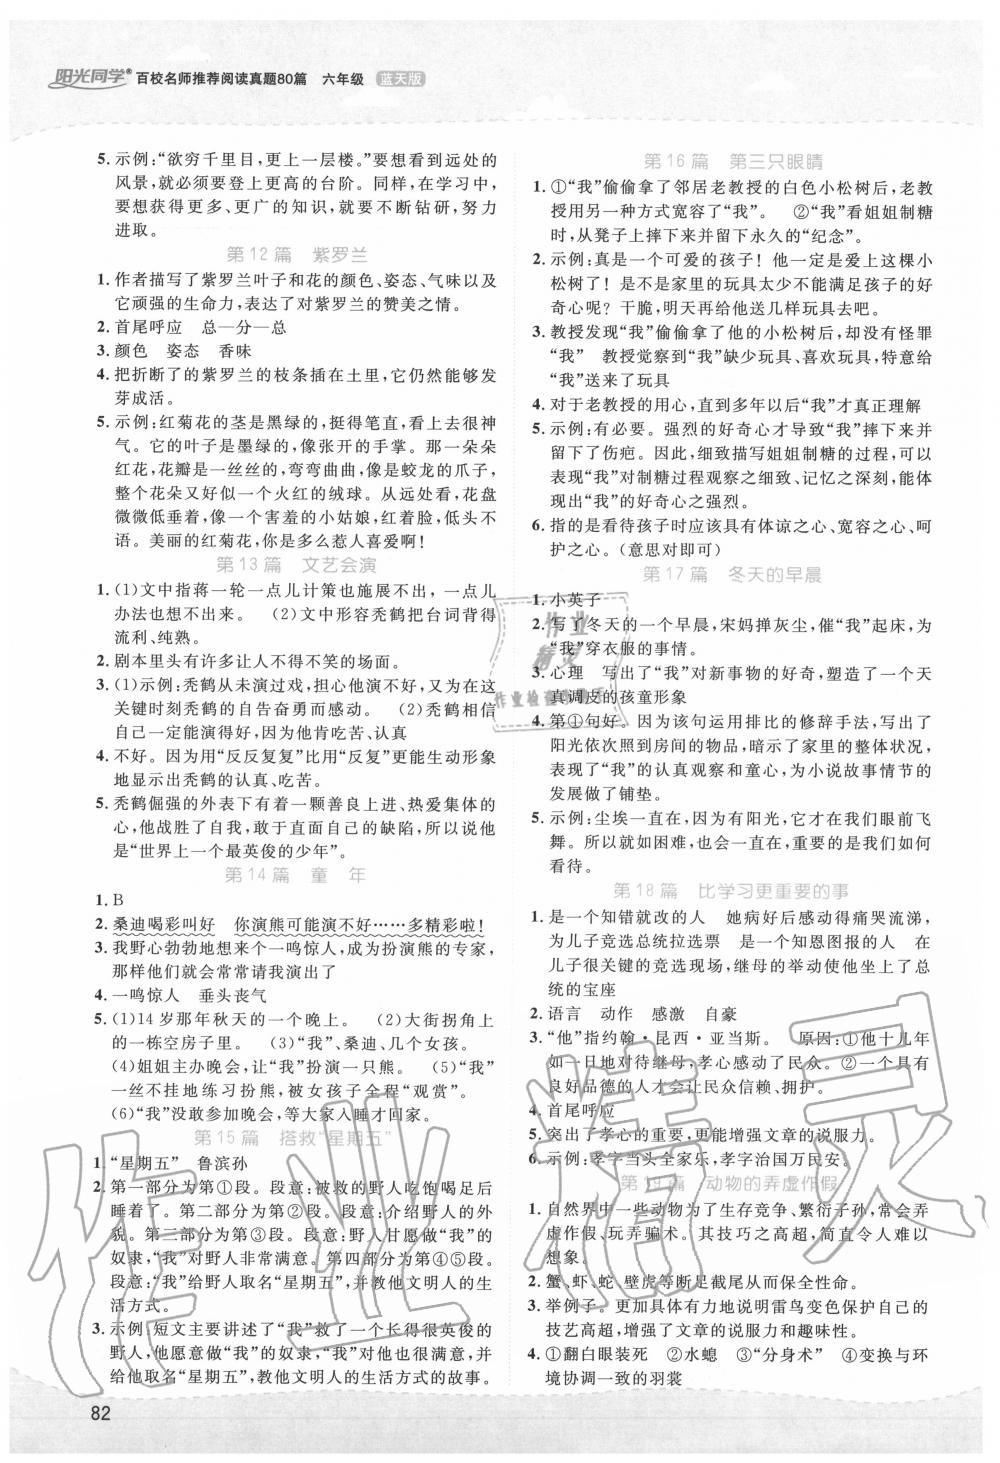 阳光同学® 百校名师推荐阅读真题80篇 六年级 蓝天版
5. 示例:“欲穷千里目,更上一层楼。”要想看到远处的
风景,就必须要登上更高的台阶。同样,在学习中,
要想获得更多、更广的知识,就要不断钻研,努力
进取。
第12篇 紫罗兰
1. 作者描写了紫罗兰叶子和花的颜色、姿态、气味以及
它顽强的生命力,表达了对紫罗兰的赞美之情。
2. 首尾呼应 总—分—总
3. 颜色 姿态 香味
4. 把折断了的紫罗兰的枝条插在土里,它仍然能够发
芽成活。
5. 示例:红菊花的茎是黑绿的,挺得笔直,看上去很神
气。它的叶子是墨绿的,像张开的手掌。那一朵朵
红花,花瓣是一丝丝的,弯弯曲曲,像是蛟龙的爪子,
整个花朵又好似一个火红的绒球。从远处看,花盘
微微低垂着,像一个害羞的小姑娘,红着脸,低头不
语。美丽的红菊花,你是多么惹人喜爱啊!
第13篇 文艺会演
1. (1)文中指蒋一轮一点儿计策也施展不出来,一点儿
办法也想不出来。 (2)文中形容秃鹤把台词背得
流利、纯熟。
2. 剧本里头有许多让人不得不笑的场面。
3. (1)示例:秃鹤从未演过戏,担心他演不好,而在这
关键时刻秃鹤的自告奋勇而感动。 (2)秃鹤相信
自己一定能演得好,因为他肯吃苦、认真
4. 不好。因为用“反反复复”比用“反复”更能生动形象
地显示出秃鹤的认真、吃苦。
5. 秃鹤倔强的外表下有着一颗善良上进、热爱集体的
心,他战胜了自我,敢于直面自己的缺陷,所以说他
是“世界上一个最英俊的少年”。
第14篇 童 年
1. B
2. 桑迪喝彩叫好 你演熊可能演不好……多精彩啦!
3. 我野心勃勃地想来个一鸣惊人,成为扮演熊的专家,
那样他们就会常常请我演出了
4. 一鸣惊人 垂头丧气
5. (1)14岁那年秋天的一个晚上。 (2)大街拐角上
的一栋空房子里。 (3)“我”、桑迪、几个女孩。
(4)姐姐主办晚会,让“我”扮演一只熊。 (5)“我”
一丝不挂地练习扮熊,被女孩子全程“观赏”。
(6)“我”没敢参加晚会,等大家入睡才回家。
第15篇 搭救“星期五”
1. “星期五” 鲁滨孙
2. 第一部分为第①段。段意:被救的野人吃饱喝足后
睡着了。第二部分为第②段。段意:介绍野人的外
貌。第三部分为第③段。段意:野人甘愿做“我”的
奴隶,“我”对野人非常满意。第四部分为第④⑤段。
段意:“我”给野人取名“星期五”,并教他文明人的生
活方式。
3. 示例:短文主要讲述了“我”救了一个长得很英俊的
野人,他愿意做“我”的奴隶,“我”对他也很满意,并
给他取名“星期五”,教他文明人的生活方式的故事。
82
第16篇 第三只眼睛
1. ①“我”偷偷拿了邻居老教授的白色小松树后,老教
授用另一种方式宽容了“我”。 ②“我”看姐姐制糖
时,从凳子上摔下来并留下永久的“纪念”。
2. 示例:真是一个可爱的孩子!他一定是爱上这棵小
松树了!是不是家里的玩具太少不能满足孩子的好
奇心呢?干脆,明天再给他送几样玩具去吧。
3. 教授发现“我”偷偷拿了他的小松树后,却没有怪罪
“我” 教授觉察到“我”缺少玩具、喜欢玩具,特意给
“我”送来了玩具
4. 对于老教授的用心,直到多年以后“我”才真正理解
5. 示例:有必要。强烈的好奇心才导致“我”摔下来并
留下了伤疤。因此,细致描写姐姐制糖的过程,可表
现“我”对制糖过程观察之细致、记忆之深刻,能体
现出“我”的好奇心之强烈。
6. 指的是看待孩子时应该具有体谅之心、宽容之心、呵
护之心。(意思对即可)
第17篇 冬天的早晨
1. 小英子
2. 写了冬天的一个早晨,宋妈掸灰尘,催“我”起床,为
“我”穿衣服的事情。
3. 心理 写出了“我”对新事物的好奇,塑造了一个天
真调皮的孩童形象
4. 第①句好。因为该句运用排比的修辞手法,写出了
阳光依次照到房间的物品,暗示了家里的整体状况,
表现了“我”的认真观察和童心,为小说故事情节的
发展做了铺垫。
5. 示例:尘埃一直在,因为有阳光,它才在我们眼前飞
舞。所以就如困难,也会一直在,重要的是我们如何
看待。
第18篇 比学习更重要的事
1. 是一个知错就改的人 她病好后感动得痛哭流涕,
为儿子竞选总统拉选票 是一个知恩图报的人 在
儿子很关键的竞选现场,继母的举动使他坐上了总
统的宝座
2. 语言 动作 感激 自豪
3. “他”指约翰·昆西·亚当斯。 原因:①他十九年
如一日地对待继母,孝心感动了民众。②一个具有
良好品德的人才会让民众信赖、拥护。
4. 首尾呼应
5. 突出了孝心的重要,更能增强文章的说服力。
6. 示例:孝字当头全家乐,孝字治国万民安。
第19篇 动物的弄虚作假
1. 自然界中一些动物为了生存竞争、繁衍子孙,常会弄
虚作假、玩弄骗术。其技巧之高超,简直令人难以
想象。
2. 蟹、虾、蛇、壁虎等断足截尾从而保全性命。
3. 举例子。更加具体有力地说明雷鸟变色保护自己的
技艺高超,增强了文章的说服力和趣味性。
4. ①翻白眼装死 ②水螅 ③“分身术” ④变换与环
境协调一致的羽裳
作业精灵
作业检查小助手
作业精灵